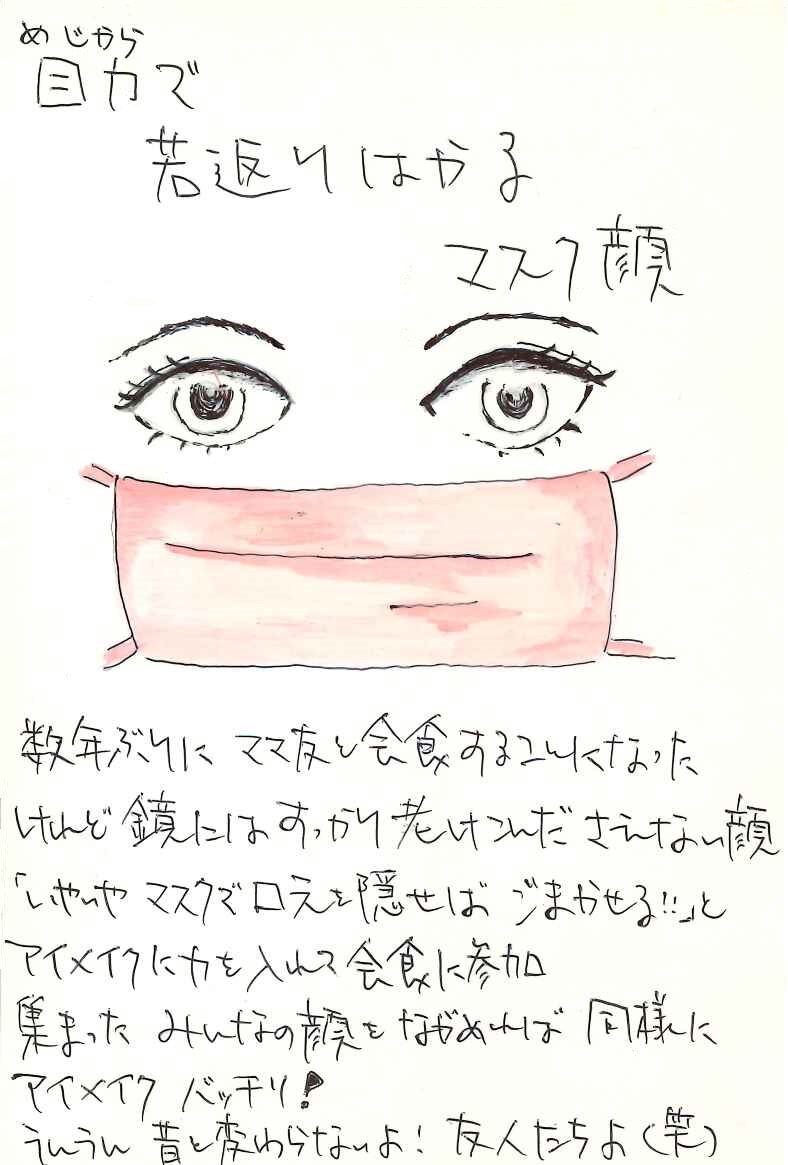 めじから
目力で
若返りはかる
マスク顔
数年ぶりに ママ友と会食することになった
けれど 鏡にはすっかり老けこんだ さえない顔
「いやいや マスクで口元を隠せば ごまかせる!!」と
アイメイクに力を入れて 会食に参加
集まった みんなの顔を ながめれば 同様に
アイメイク バッチリ!
うんうん 昔と変わらないよ! 友人たちよ(笑)